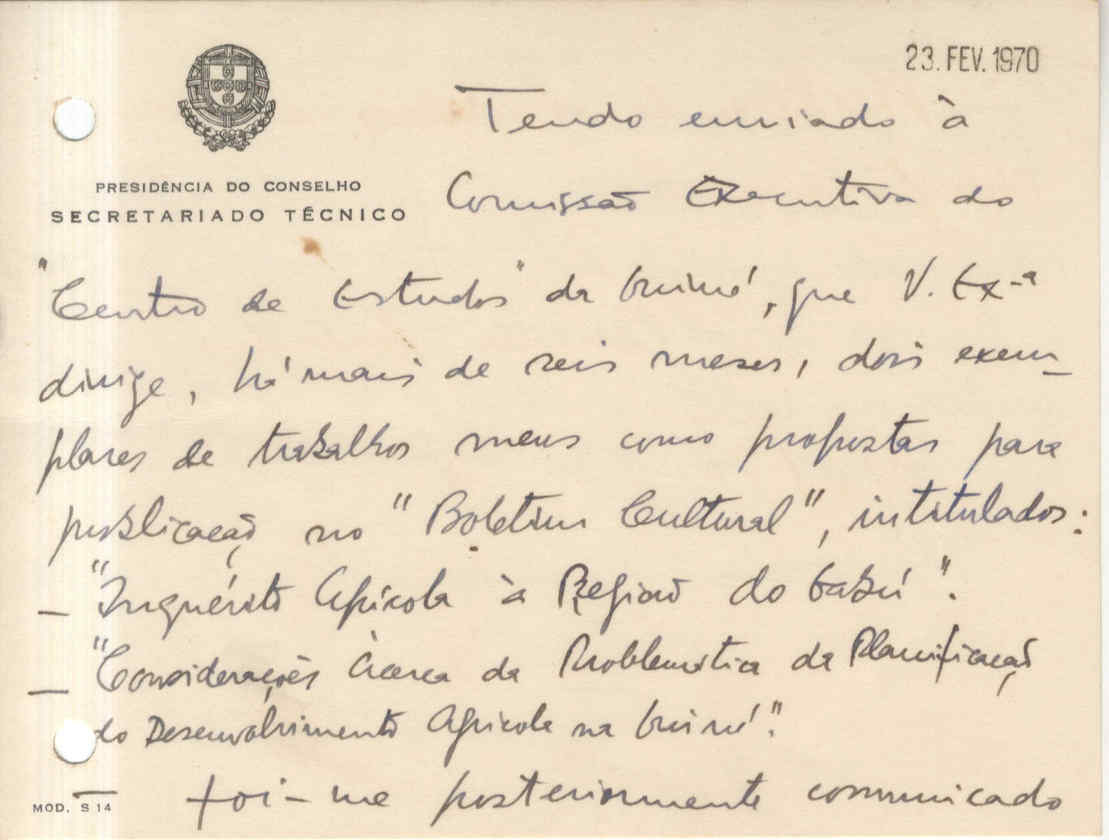 23. FEV. 1970
PRESIDÊNCIA DO CONSELHO
SECRETARIADO TÉCNICO
Tendo enviado à
Comissão Executiva do
"Centro de Estudos" da Guiné, que V. Ex-ª
dirige, há mais de seis meses, dois exem-
plares de trabalhos meus como propostas para
publicação no "Boletim Cultural", intitulados:
– "Inquérito Agrícola à Região do Gabú".
– "Considerações Àcerca da Problemática da Planificação
do Desenvolvimento Agrícola na Guiné".
foi-me posteriormente comunicado
MOD. S 14